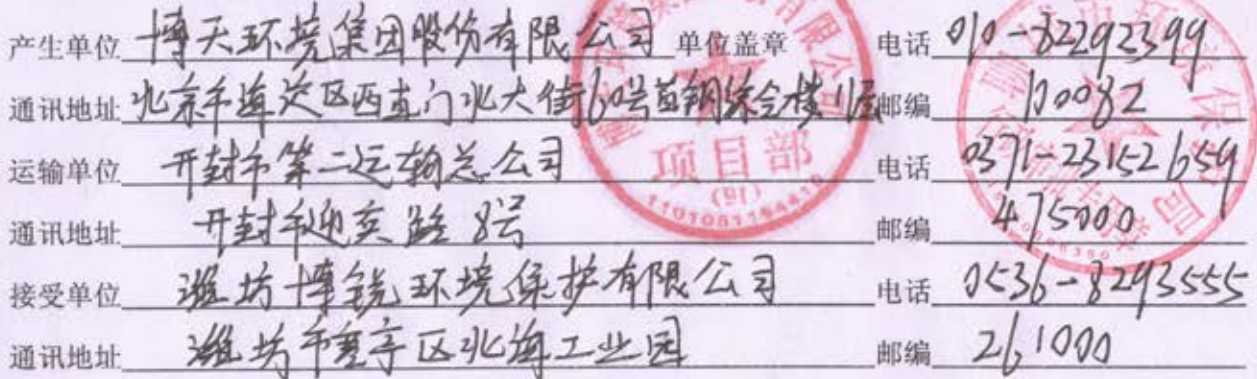 产生单位 博天环境集团股份有限公司 单位盖章 电话 010-82292399
通讯地址 北京市海淀区西直门北大街60号首钢综合楼11层 邮编 100082
运输单位 开封市第二运输总公司 电话 0371-23152659
通讯地址 开封市迎宾路8号 邮编 475000
接受单位 潍坊博锐环境保护有限公司 电话 0536-8293555
通讯地址 潍坊市寒亭区北海工业园 邮编 261000
项目部
(91)